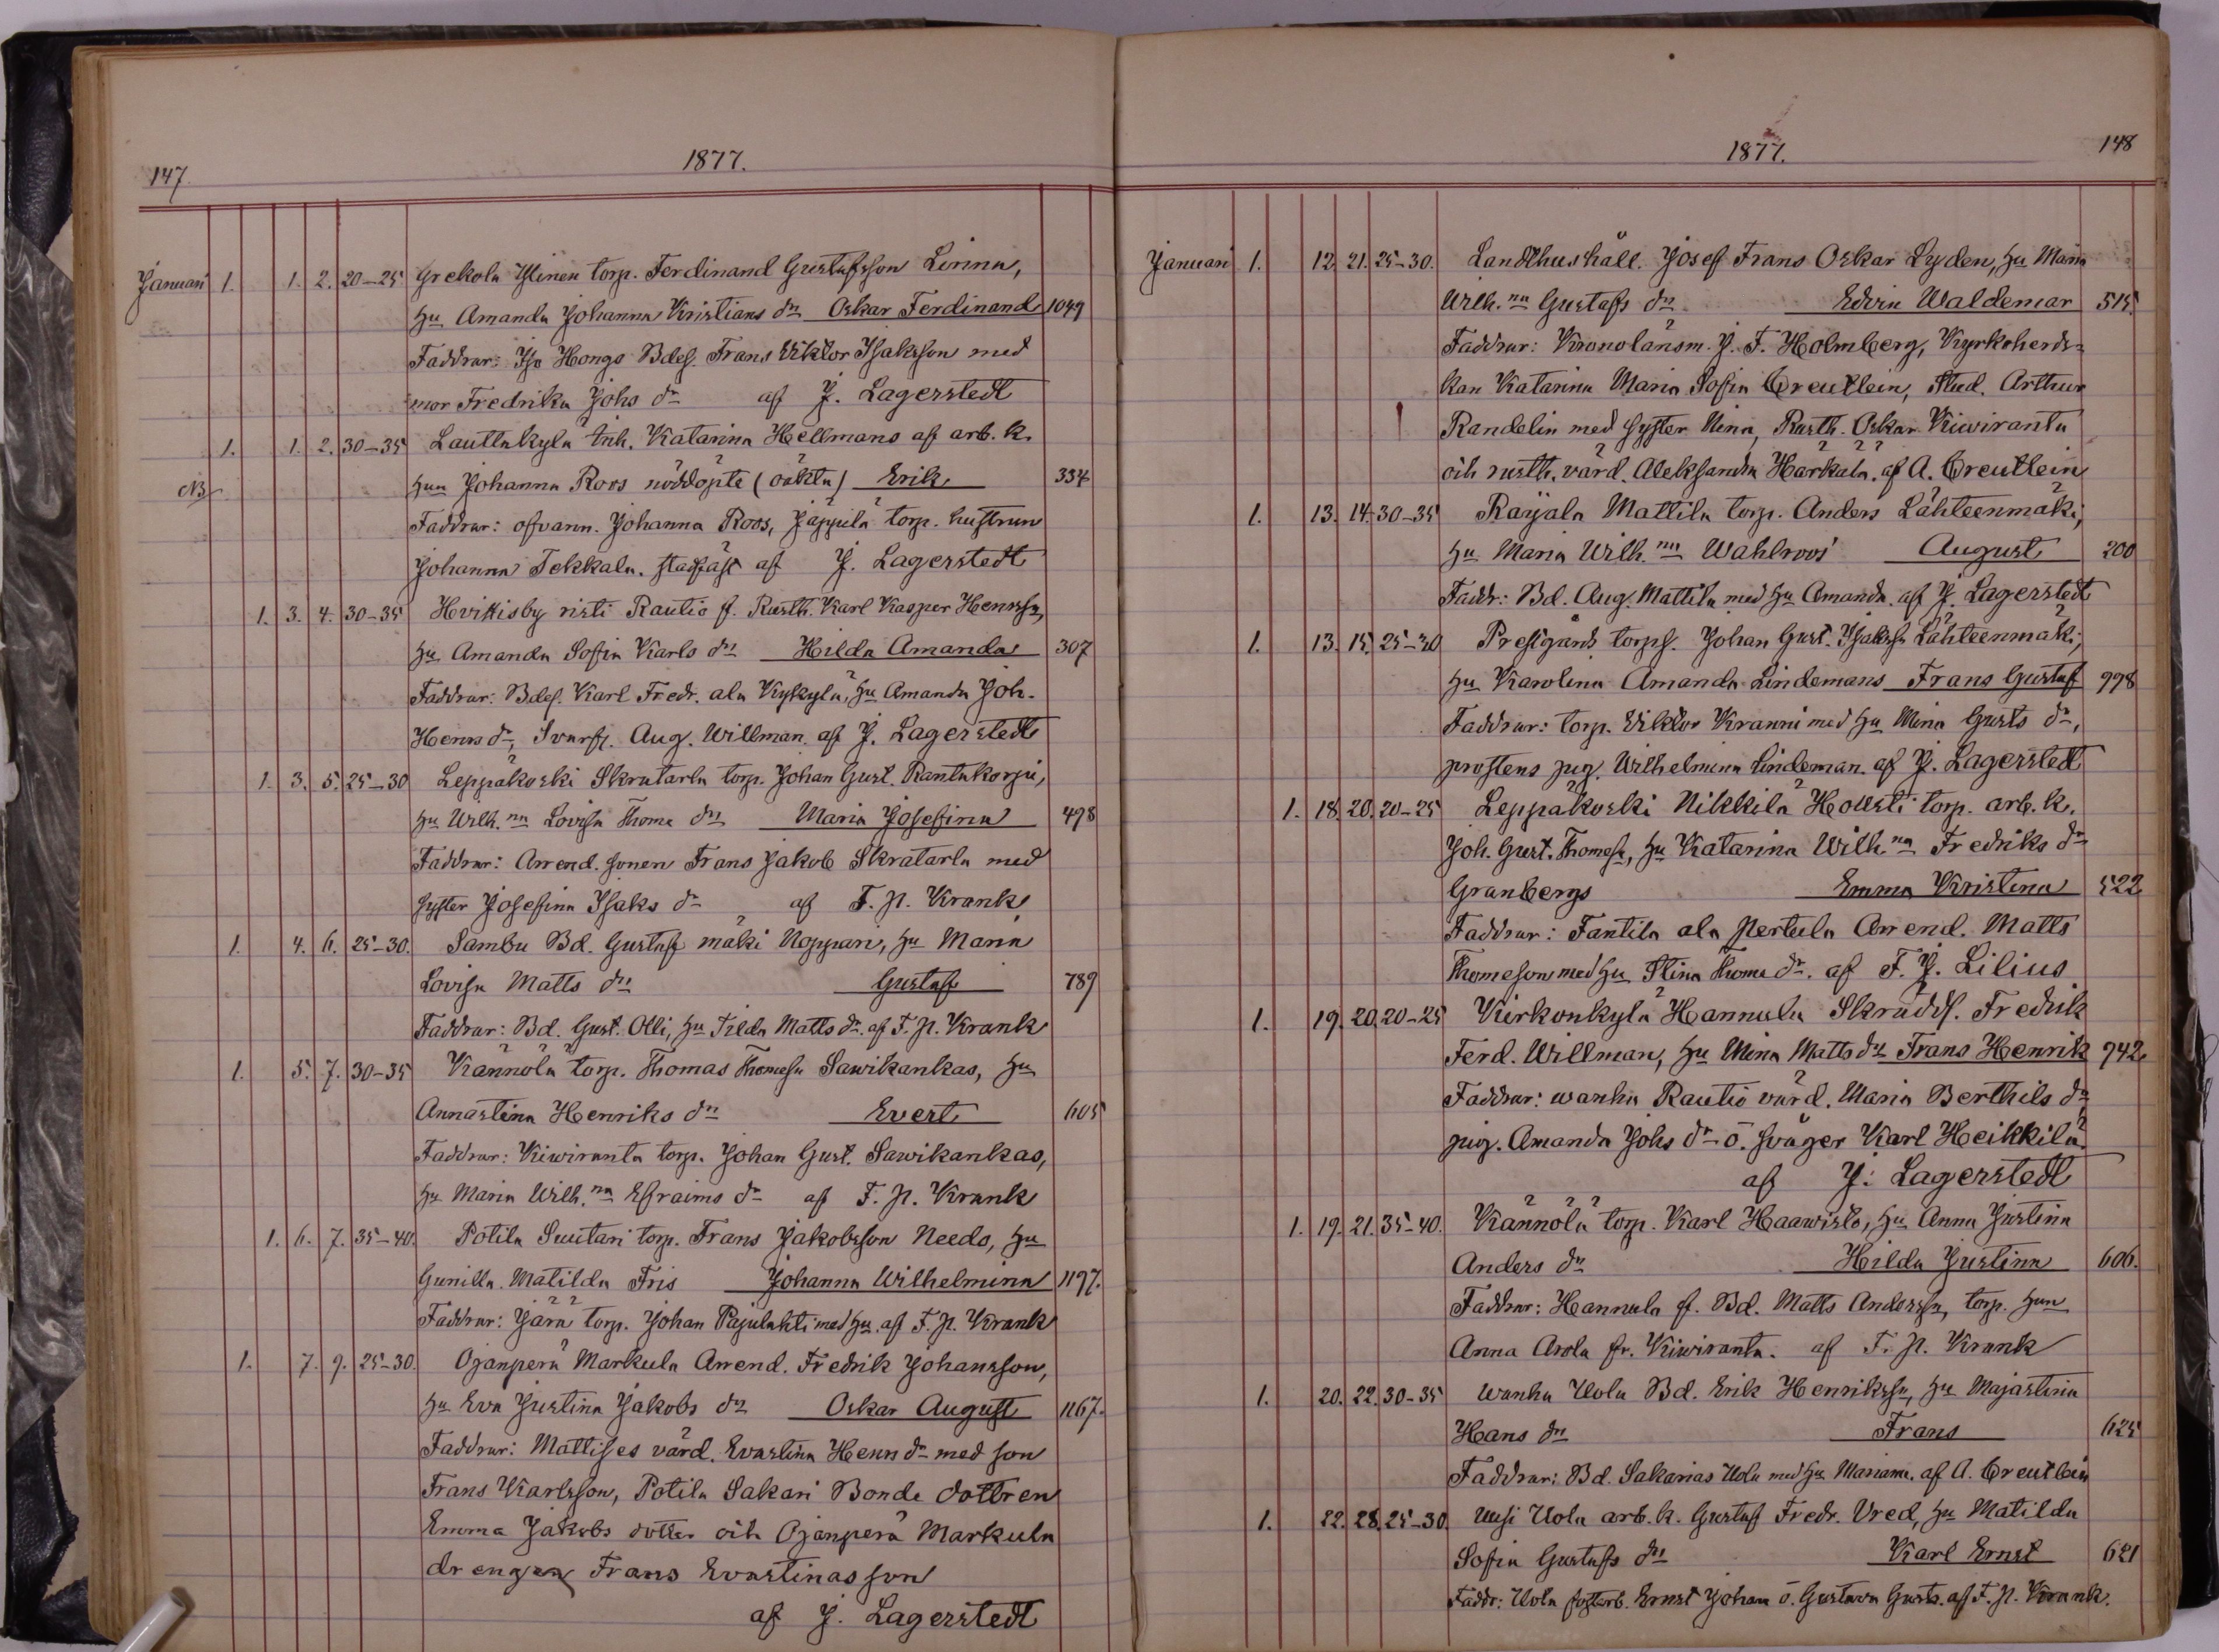 147
1877.
Januari 1. 1. 2. 20-25 Grekola Ylinen torp. Ferdinand Gustafsson Linna,
hu Amanda Johanna Kristians dr Oskar Ferdinand 1049
Faddrar: Iso Hongo Bdes. Frans Viktor Isaksson med
mor Fredrika Johs dr af J. Lagerstedt
1. 1. 2. 30-35 Lauttakylä inh. Katarina Hellmans af arb. k.
hun Johanna Roos nöddöpte (oäkta) Erik 334
NB
Faddrar: ofvann. Johanna Roos, Jäppilä torp. hustrun
Johanna Tekkala. stadfäst af J. Lagerstedt
1. 3. 4. 30-35 Hvittisby risti Rautio f. Rusth. Karl Kasper Henrssn,
hu Amanda Sofia Karls dr Hilda Amanda 307
Faddrar: Bdes. Karl Fredr. ala Kyläkylä, hu Amanda Joh.
Henrs dr, Svarfv. Aug. Willman. af J. Lagerstedt
1. 3. 5. 25-30 Leppäkoski Skratarla torp. Johan Gust. Rantakorpi,
hu Wilh.na Lovisa Thoms dr Maria Josefina 498
Faddrar: Arrend. sonen Frans Jakob Skratarla med
syster Josefina Isaks dr af F. P. Krank
1. 4. 6. 25-30. Sambu Bd. Gustaf mäki Noppari, hu Maria
Lovisa Matts dr Gustaf 789
Faddrar: Bd. Gust. Olli, hu Tilda Matts dr. af F. P. Krank
1. 5. 7. 30-35 Kännölä torp. Thomas Thomassn Sawikankas, hu
Annastina Henriks dr Evert 605
Faddrar: Kiwiranta torp. Johan Gust. Sawikankas,
hu Maria Wilh.na Efraims dr af F. P. Krank
1. 6. 7. 35-40. Potila Suutari torp. Frans Jakobsson Needo, hu
Gunilla Matilda Fris Johanna Wilhelmina 1197.
Faddrar: Järä torp. Johan Pajulahti med hu. af F. P. Krank
1. 7. 9. 25-30. Ojanperä Markula Arrend. Fredrik Johansson,
hu Eva Justina Jakobs dr Oskar August 1167.
Faddrar: Mattises värd. Evastina Henrs dr med son
Frans Karlsson, Potila Sakari Bonde dottren
Emma Jakobs dotter och Ojanperä Markula
drengen Frans Evastinas son
af J. Lagerstedt
1877.
148
Januari 1. 12. 21. 25-30. Landthushåll. Josef Frans Oskar Lyden, hu Maria
Wilh.na Gustafs dr Edvin Waldemar 515.
Faddrar: Kronolänsm. J. F. Holmberg, Kyrkoherds-
kan Katarina Maria Sofia Creutlein, Stud. Arthur
Randelin med syster Nina, Rusth. Oskar Kiwiranta
och rusth. värd. Aleksandra Härkälä. af A. Creutlein
1. 13. 14. 30-35 Raijala Mattila torp. Anders Lähteenmäki,
hu Maria Wilh.na Wahlroos August 200
Faddr: Bd. Aug. Mattila med hu Amanda. af J. Lagerstedt
1. 13. 15. 25-30 Prestgårds torps. Johan Gust. Isakssn Lähteenmäki,
hu Karolina Amanda Lindemans Frans Gustaf 998
Faddrar: torp. Viktor Kranni med hu Mina Gusts dr,
prostens pig. Wilhelmina Lindeman. af J. Lagerstedt
1. 18. 20. 20-25 Leppäkoski Nikkilä Hollsti torp. arb. k.
Joh. Gust. Thomasn, hu Katarina Wilh.na Fredriks dr
Granbergs Emma Kristina 522
Faddrar: Fantila ala Pertula Arrend. Matts
Thomeson med hu Stina Thoms dr. af F. J. Lilius
1. 19. 20. 20-25 Kirkonkylä Hannula Skrädd. Fredrik
Ferd. Willman, hu Mina Matts dr Frans Henrik 942.
Faddrar: wanha Rautio värd. Maria Berthils dr,
pig. Amanda Johs dr o. svåger Karl Heikkilä
af J. Lagerstedt
1. 19. 21. 35-40. Kännölä torp. Karl Haawisto, hu Anna Justina
Anders dr Hilda Justina 606.
Faddrar: Hannula f. Bd. Matts Anderssn, torp. hun
Anna Arola fr. Kiwiranta. af F. P. Krank
1. 20. 22. 30-35 Wanha Uola Bd. Erik Henrikssn, hu Majastina
Hans dr Frans 625
Faddrar: Bd. Sakarias Uola med hu Mariana. af A. Creutlein
1. 22. 28. 25-30. Uusi Uola arb. k. Gustaf Fredr. Vred, hu Matilda
Sofia Gustafs dr Karl Ernst 621
Faddr: Uola Ernst Johan o. Gustava Gusts. af F. P. Krank.